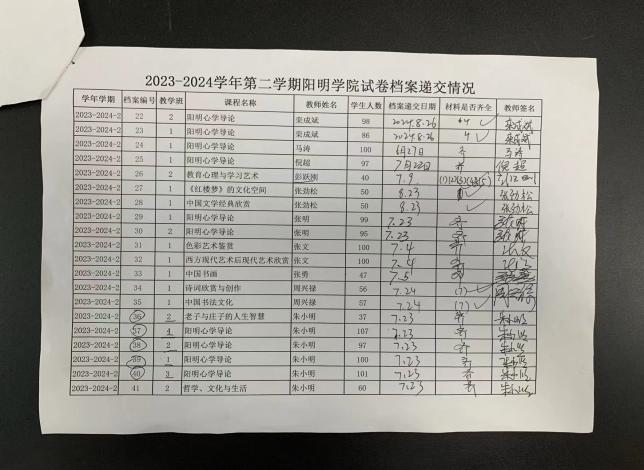 2023-2024学年第二学期阳明学院试卷档案递交情况
学年学期 档案编号 教学班 课程名称 教师姓名 学生人数 档案递交日期 材料是否齐全 教师签名
2023-2024-2 22 2 阳明心学导论 栾成斌 98 2024.8.26 栾成斌
2023-2024-2 23 1 阳明心学导论 栾成斌 86 2024.8.26 栾成斌
2023-2024-2 24 1 阳明心学导论 马涛 100 6月27日 齐 马涛
2023-2024-2 25 1 阳明心学导论 倪超 97 齐 倪超
2023-2024-2 26 2 教育心理与学习艺术 彭跃刚 40 7.9
2023-2024-2 27 1 《红楼梦》的文化空间 张劲松 50 8.23 张劲松
2023-2024-2 28 1 中国文学经典欣赏 张劲松 50 8.23 张劲松
2023-2024-2 29 1 阳明心学导论 张明 99 7.23 齐
2023-2024-2 30 2 阳明心学导论 张明 95 7.23 齐
2023-2024-2 31 1 色彩艺术鉴赏 张文 100 7.4 齐
2023-2024-2 32 1 西方现代艺术后现代艺术欣赏 张文 100 7.4 齐
2023-2024-2 33 1 中国书画 张勇 47 7.5
2023-2024-2 34 1 诗词欣赏与创作 周兴禄 56 7.24 (7)
2023-2024-2 35 1 中国书法文化 周兴禄 57 7.24 (7)
2023-2024-2 36 2 老子与庄子的人生智慧 朱小明 37 7.23 齐 朱小明
2023-2024-2 37 4 阳明心学导论 朱小明 107 7.23 齐 朱小明
2023-2024-2 38 2 阳明心学导论 朱小明 97 7.23 齐 朱小明
2023-2024-2 39 1 阳明心学导论 朱小明 100 7.23 齐 朱小明
2023-2024-2 40 3 阳明心学导论 朱小明 101 7.23 齐 朱小明
2023-2024-2 41 2 哲学、文化与生活 朱小明 60 7.23 齐 朱小明